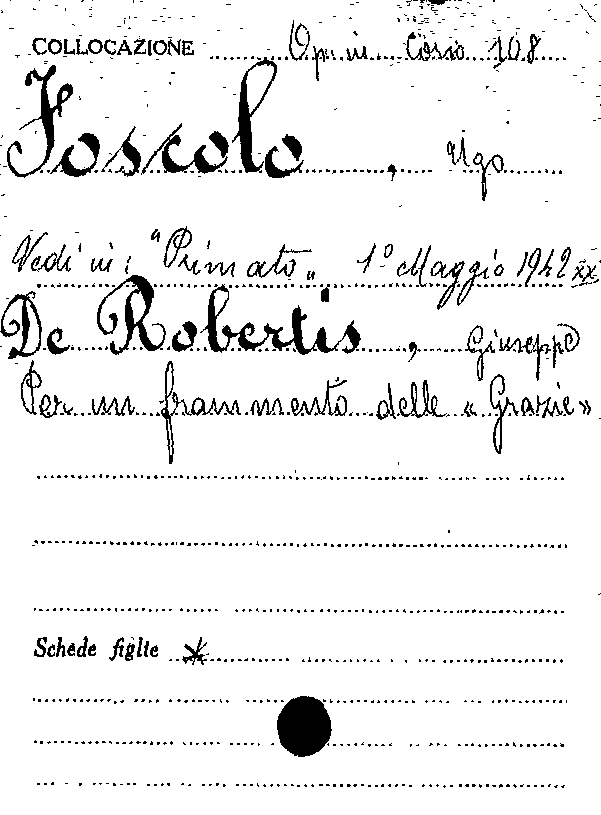 COLLOCAZIONE Op. in Corso 108
Foscolo, Ugo
Vedi in: "Primato„ 1° Maggio 1942 XX
De Robertis, Giuseppe
Per un frammento delle « Grazie »
Schede figlie *